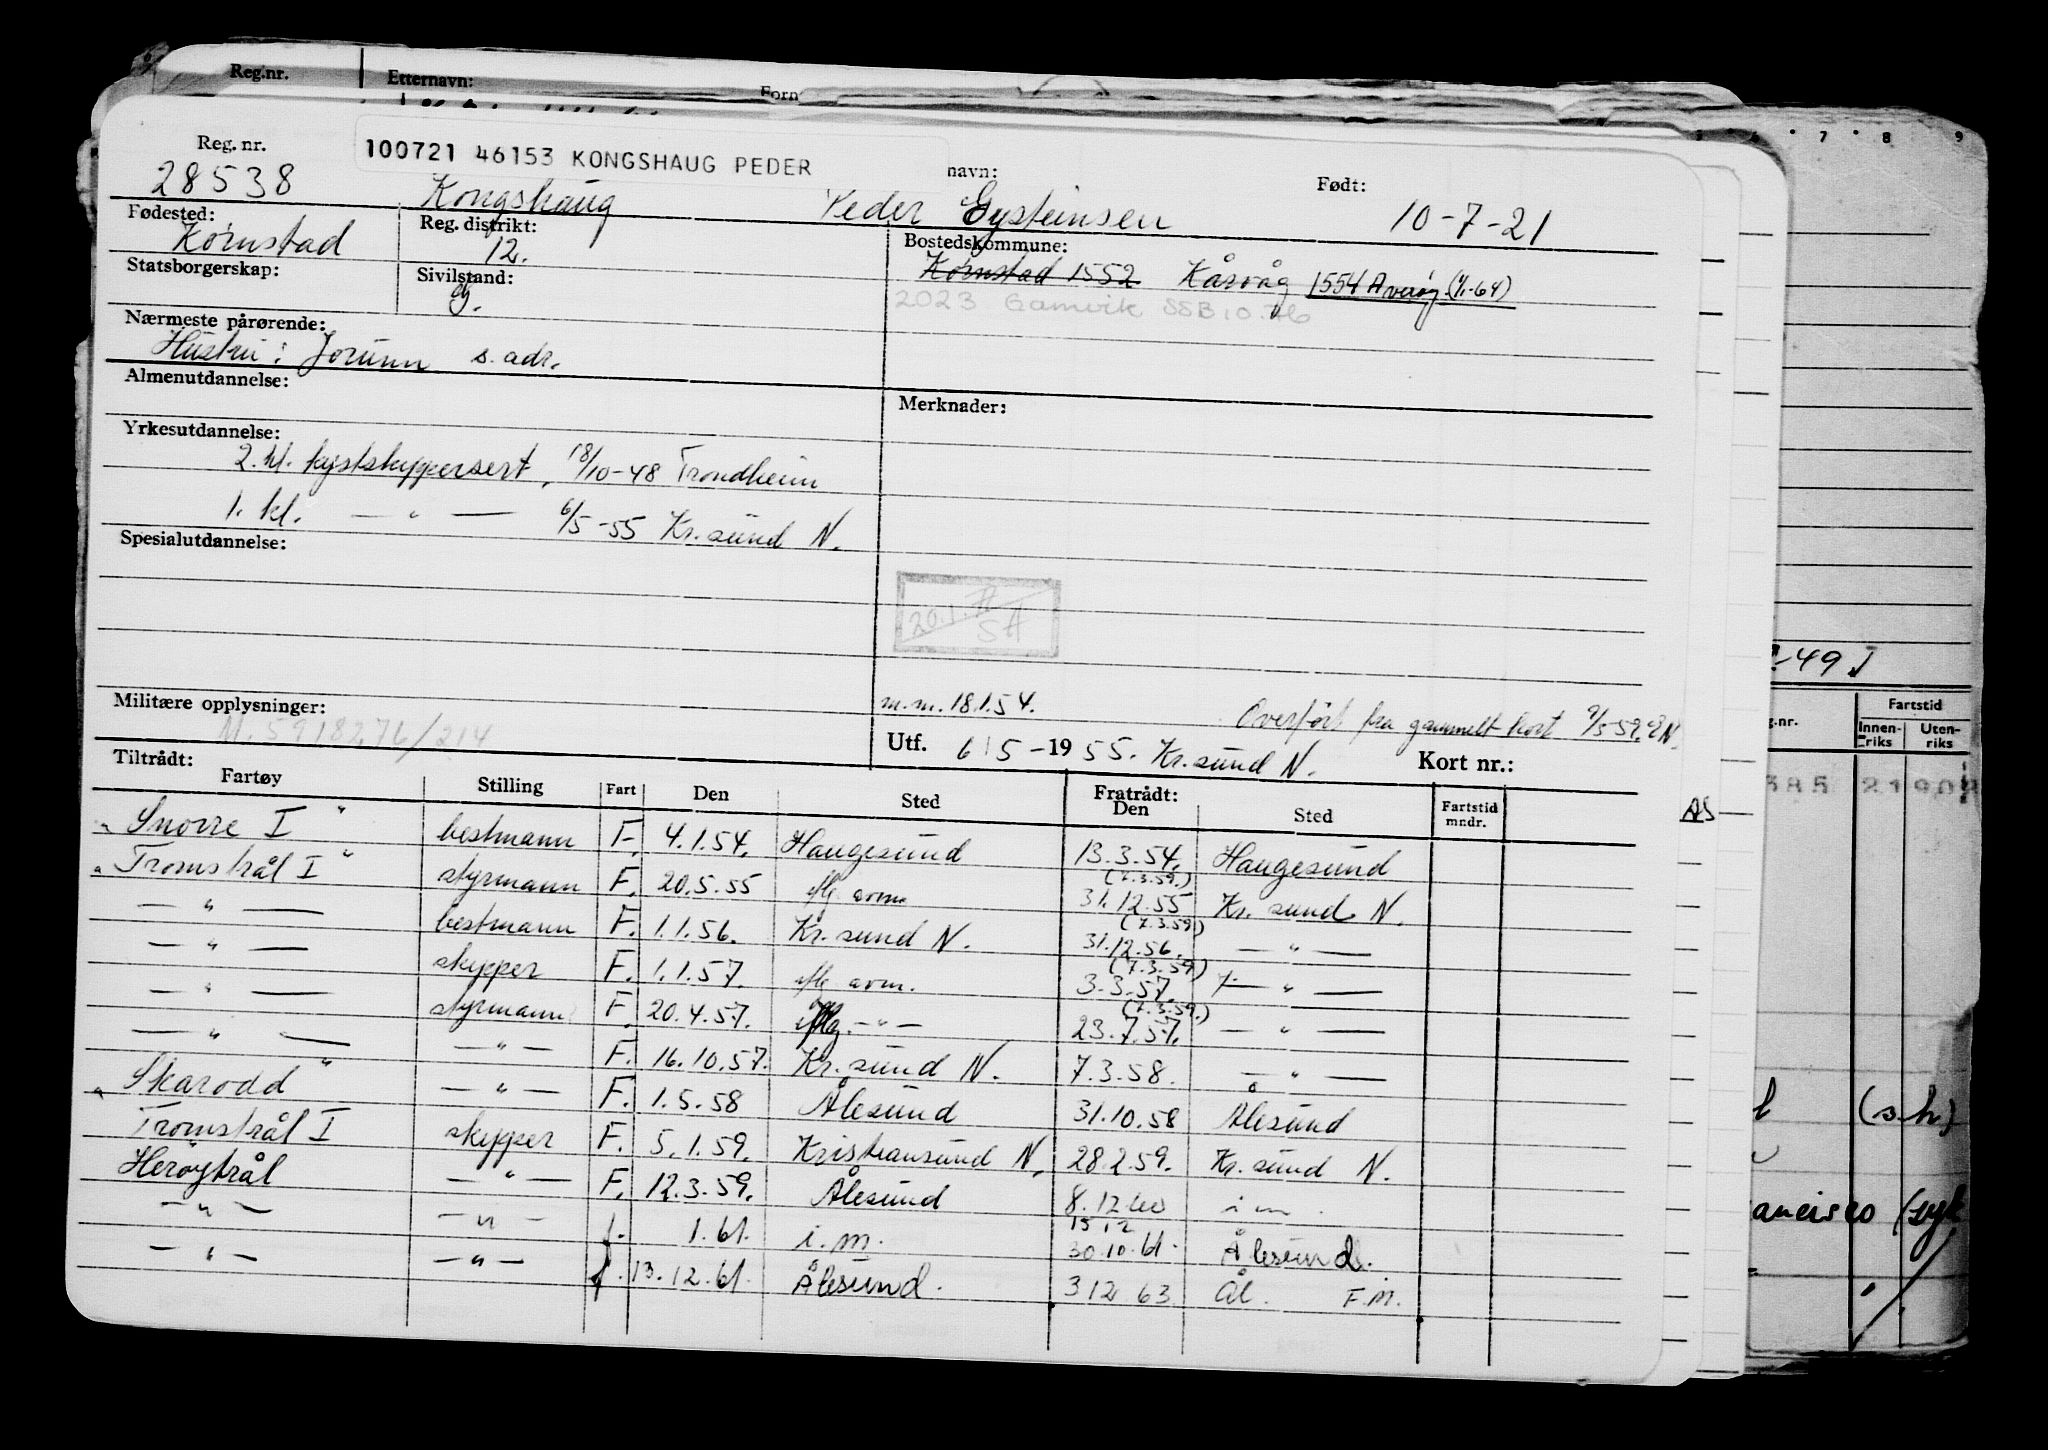 Reg.nr. Etternavn: Forn
Reg. nr. 100721 46153 KONGSHAUG PEDER navn: Født:
28538 Kongshaug Peder Eysteinsen 10-7-21
Fødested: Reg. distrikt: Bostedskommune:
Kornstad 12. Kornstad 1552 Kårvåg 1554 Averøy (1/1-64)
Statsborgerskap: Sivilstand: 2023 Gamvik SSB 10.76
g.
Nærmeste pårørende:
Hustru: Jorunn s. adr.
Almenutdannelse: Merknader:
Yrkesutdannelse:
2. kl. kystskippersert, 18/10-48 Trondheim
1. kl. — " — 6/5-55 Kr.sund N.
Spesialutdannelse:
20.1. SA
Militære opplysninger: m.m. 18.1.54. Overført fra gammelt kort 9/5-59.
M. 5918276/214
Utf. 6/5-1955. Kr.sund N. Kort nr.:
Tiltrådt: Fratrådt:
Fartøy Stilling Fart Den Sted Den Sted Fartstid mndr.
"Snorre I" bestmann F. 4.1.54. Haugesund 13.3.54. Haugesund
"Tromstrål I" styrmann F. 20.5.55 iflg avm. (7.3.59.) 31.12.55 Kr. sund N.
— " — bestmann F. 1.1.56. Kr. sund N. (7.3.59) 31.12.56. — " —
— " — skipper F. 1.1.57. iflg avm. (7.3.59) 3.3.57. — " —
— " — styrmann F. 20.4.57. iflg. — " — (7.3.59.) 23.7.57. — " —
— " — — " — F. 16.10.57. Kr. sund N. 7.3.58. — " —
"Skarodd" — " — F. 1.5.58 Ålesund 31.10.58 Ålesund
Tromstrål I skipper F. 5.1.59. Kristiansund N. 28.2.59. Kr. sund N.
Herøytrål — " — F. 12.3.59. Ålesund 8.12.60 i m.
— " — — " — f. 1.61. i.m. 15 12 30.10.61. Ålesund.
— " — — " — f. 13.12.61. Ålesund. 3 12 63 Ål. F.M.
6 7 8 9
-49
g.nr. Fartstid
Innen-riks Uten-riks
385 21908
AS
(s.h)
ancisco (syk